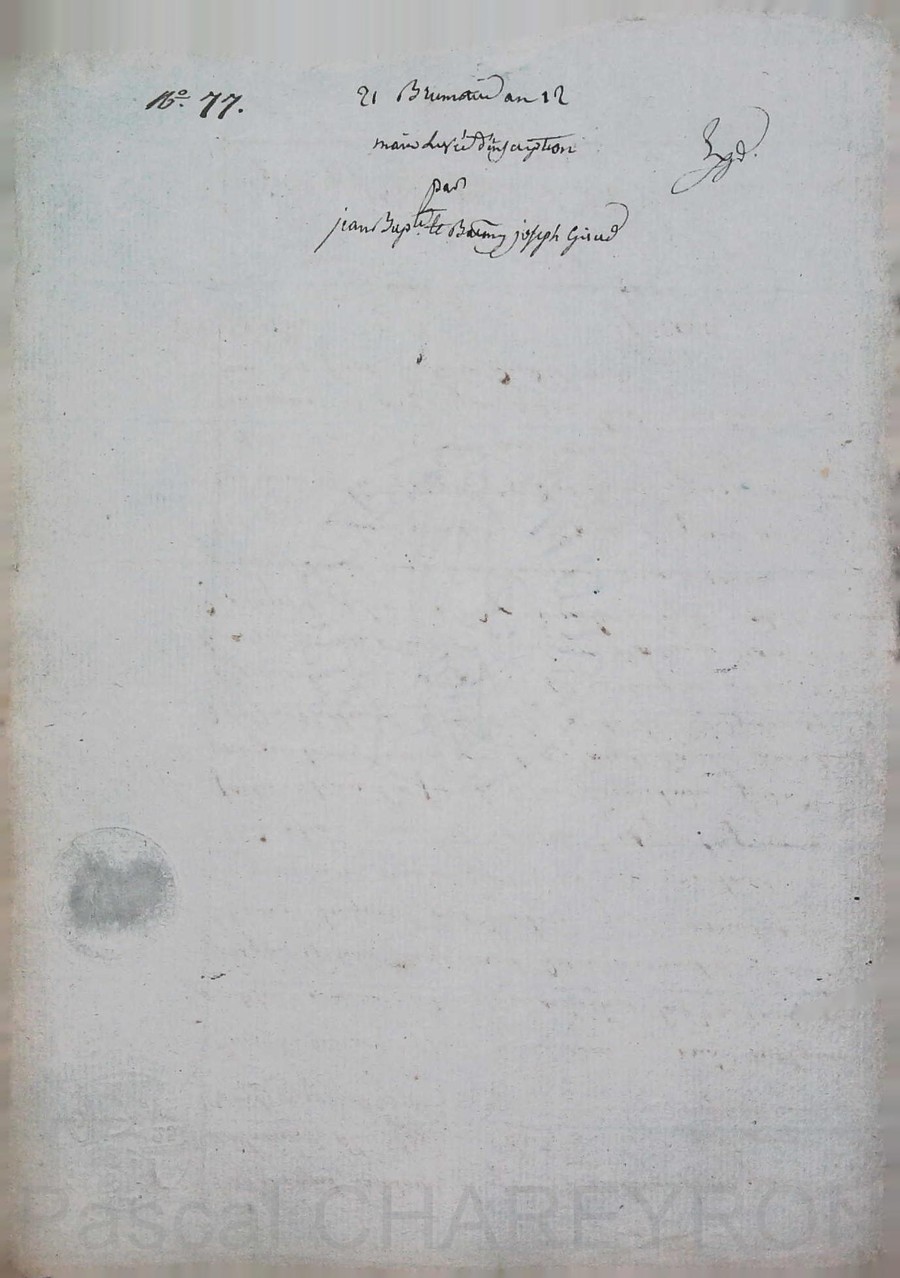 N.º 77.
21 Brumaire an 12
main levée d'inscription
Rgd.
par
jean Baptte joseph Giraud
Pascal CHAREYRON